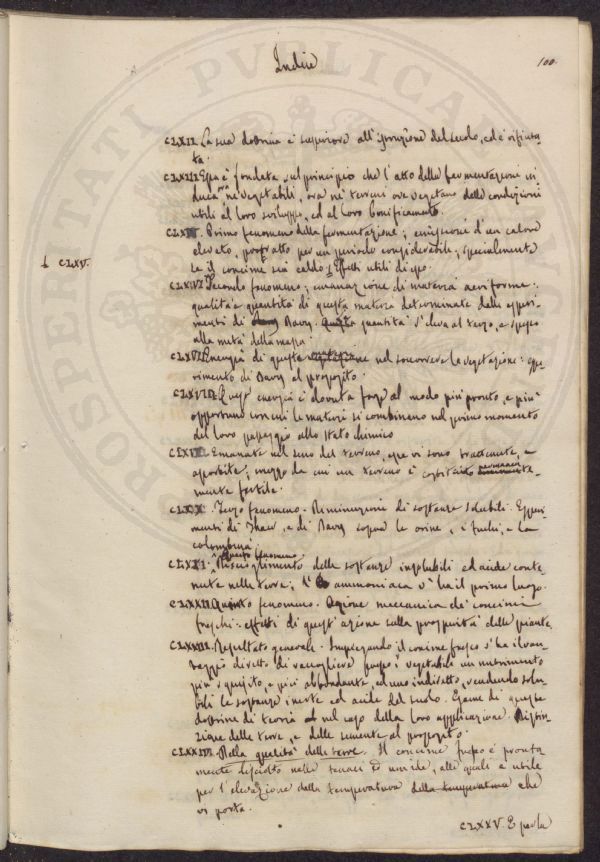 Indice
100
CLXII. La sua dottrina è superiore all'istruzione del secolo, ed è rifiuta-
ta.
CLXIII. Essa è fondata sul principio che l'atto della fermentazione in
duca ne' vegetabili, ora ne' terreni ove vegetano delle condizioni
utili al loro sviluppo, ed al loro bonificamento.
CLXIV. Primo fenomeno della fermentazione; emissione d'un calore
elevato, protratto per un periodo considerabile; specialmente
CLXV.
se il concime sia caldo. Effetti utili di esso.
CLXVI. Secondo fenomeno; emanazione di materia aeriforme:
qualità e quantità di questa materia determinate dalle esperi-
menti di Davy. Questa quantità s'eleva al terzo, e spesso
alla metà della massa.
CLXVII. Energia di questa nel soccorrere la vegetazione: espe-
rimento di Davy al proposito.
Quest'energia è dovuta forse al modo più pronto, e più
opportuno con cui le materie si combinano nel primo momento
del loro passaggio allo stato chimico
Emanate nel seno del terreno, esse vi sono trattenute, e
assorbite; mezzo da cui un terreno è
mente fertile.
CLXX. Terzo fenomeno. Diminuzione di sostanze solubili. Esperi-
menti di Thaer, e di Davy sopra le orine, i fuchi, e la
colombina.
CLXXI. Quarto fenomeno. Discioglimento delle sostanze insolubili ed acide conte-
nute nelle terre; l'ammoniaca v'ha il primo luogo.
CLXXII. Quinto fenomeno. Azione meccanica de' concimi
freschi: effetti di quest'azione sulla prosperità delle piante.
CLXXIII. Resultato generale. Impiegando il concime fresco s'ha il van-
taggio diretto di raccogliere pe' vegetabili un nutrimento
più squisito, e più abbondante, ed uno indiretto, rendendo solu-
bili le sostanze inerte ed acide del suolo. Esame di queste
dottrine di teoria nel caso della loro applicazione. Distin-
zione delle terre, e delle semente al proposito.
CLXXIV. Della qualità delle terre. Il concime fresco è pronta
mente disciolto nelle tenaci ed umide, alle quali è utile
per l'elevazione della temperatura della temperatura che
vi porta.
CLXXV E parla